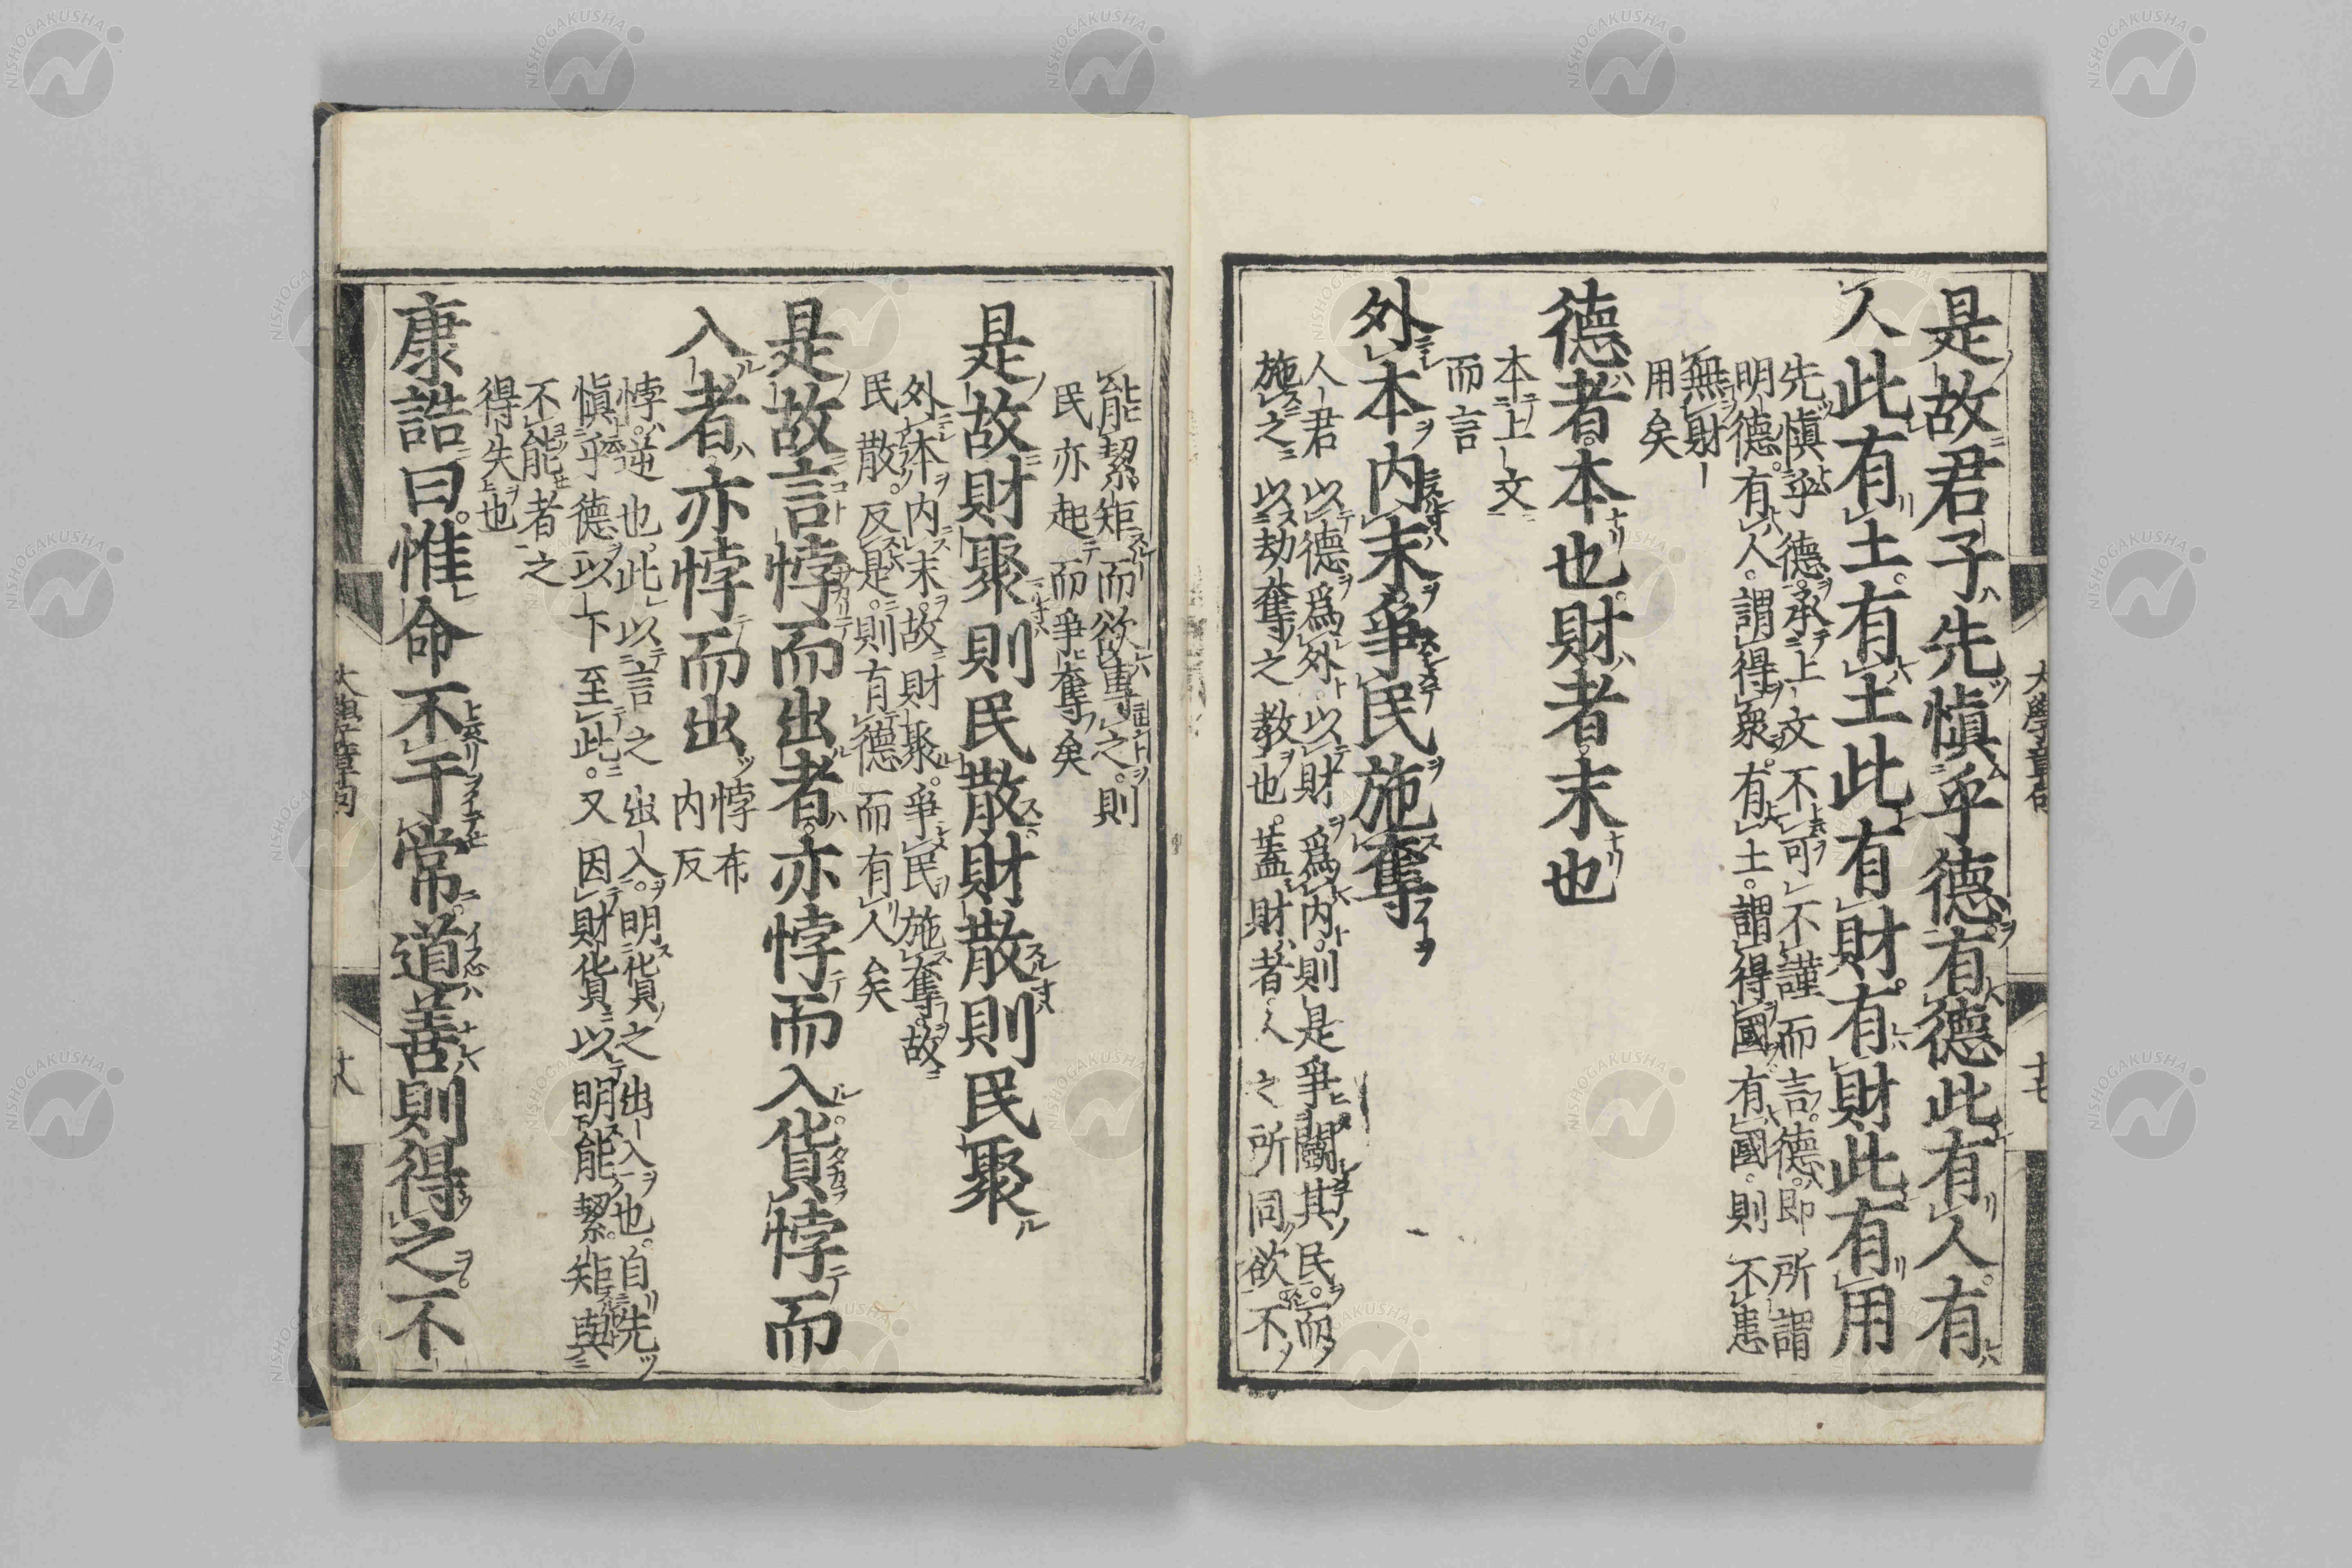 是故君子先愼乎德有德此有人有
人此有土有土此有財有財此有用
先愼乎德承上文不可不謹而言德即所謂
明德有人謂得衆有土謂得國有國則不患
無財
用矣
德者本也財者末也
本上文
而言
外本內末爭民施奪
人君以德爲外以財爲內則是爭鬭其民而
施之以劫奪之教也蓋財者人之所同欲不
大學章句
十七
能絜矩而欲專之則
民亦起而爭奪矣
是故財聚則民散財散則民聚
外本內末故財聚爭民施奪故
民散反是則有德而有人矣
是故言悖而出者亦悖而入貨悖而
入者亦悖而出
悖布
內反
悖逆也此以言之出入明貨之出入也自先
愼乎德以下至此又因財貨以明能絜矩與
不能者之
得失也
康誥曰惟命不于常道善則得之不
大學章句
十八
NISHOGAKUSHA